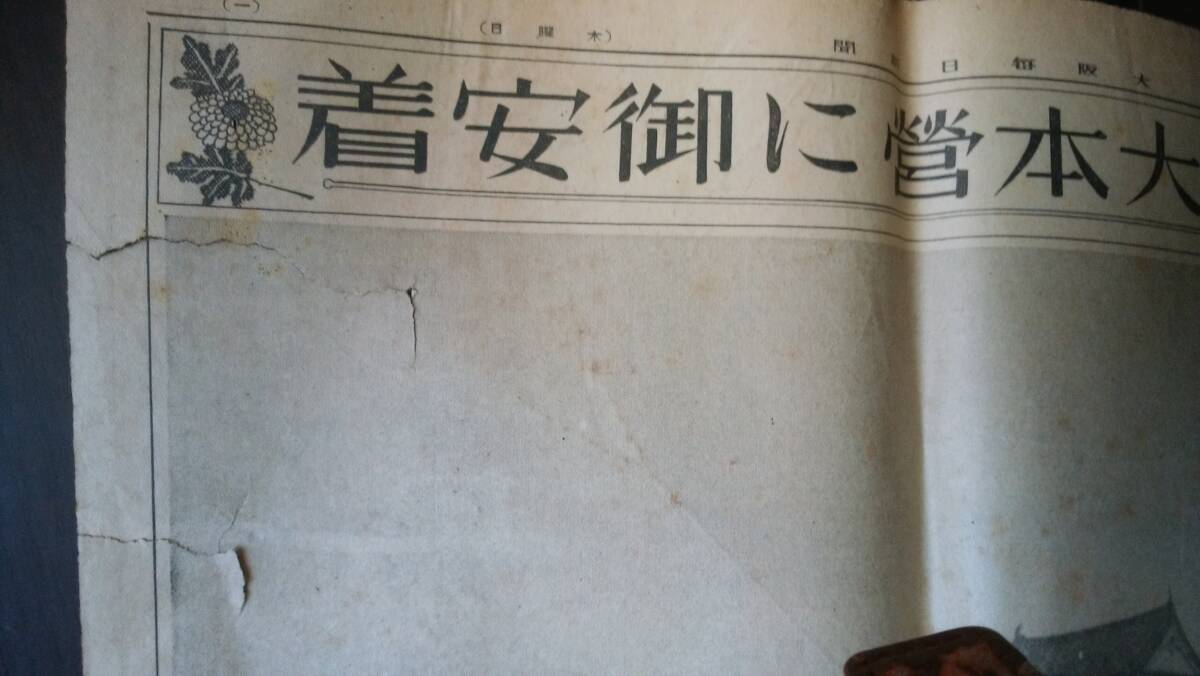 大阪每日新聞 (木曜日) (一)
大本營に御安着